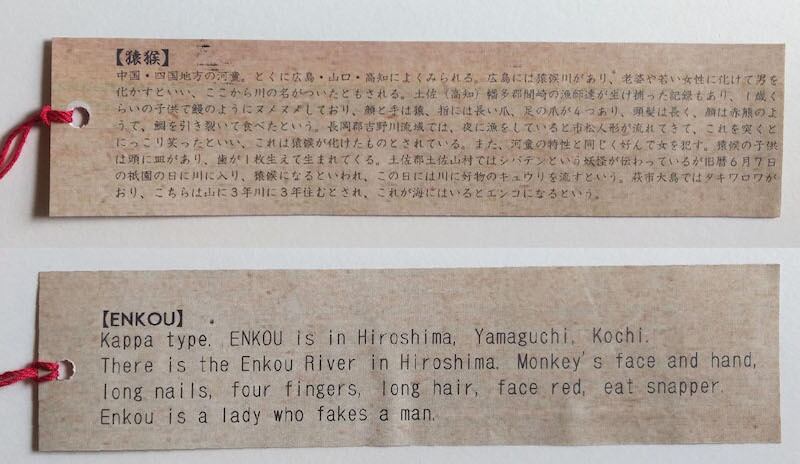 【猿猴】
中国・四国地方の河童。とくに広島・山口・高知によくみられる。広島には猿猴川があり、老婆や若い女性に化けて男を
化かすといい、ここから川の名がついたともされる。土佐（高知）幡多郡間崎の漁師達が生け捕った記録もあり、1歳く
らいの子供で鰻のようにヌメヌメしており、顔と手は猿、指には長い爪、足の爪が4つあり、頭髪は長く、顔は赤熊のよ
うで、鯛を引き裂いて食べたという。長岡郡吉野川流域では、夜に漁をしていると市松人形が流れてきて、これを突くと
にっこり笑ったといい、これは猿猴が化けたものとされている。また、河童の特性と同じく好んで女を犯す。猿猴の子供
は頭に皿があり、歯が1枚生えて生まれてくる。土佐郡土佐山村ではシバテンという妖怪が伝わっているが旧暦6月7日
の祇園の日に川に入り、猿猴になるといわれ、この日には川に好物のキュウリを流すという。萩市大島ではタキワロワが
おり、こちらは山に3年川に3年住むとされ、これが海にはいるとエンコになるという。
【ENKOU】
Kappa type. ENKOU is in Hiroshima, Yamaguchi, Kochi.
There is the Enkou River in Hiroshima. Monkey's face and hand,
long nails, four fingers, long hair, face red, eat snapper.
Enkou is a lady who fakes a man.